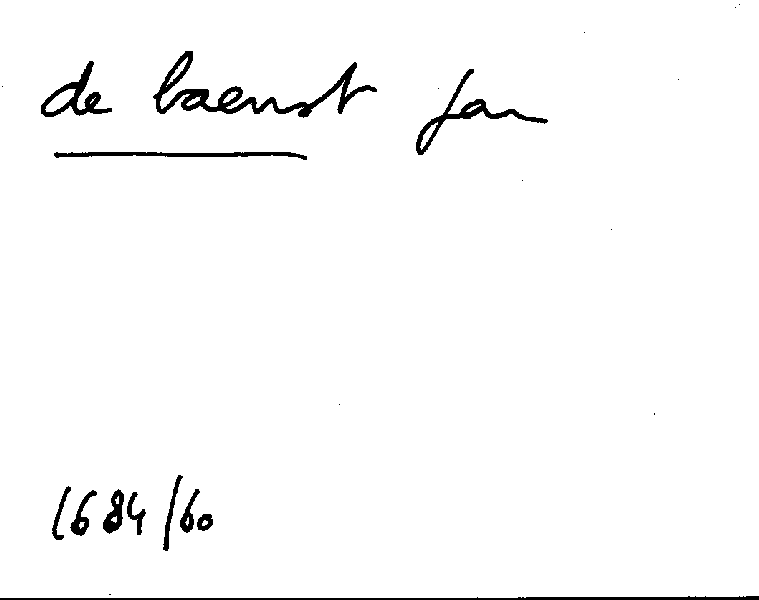 de baenst Jan
1684/60